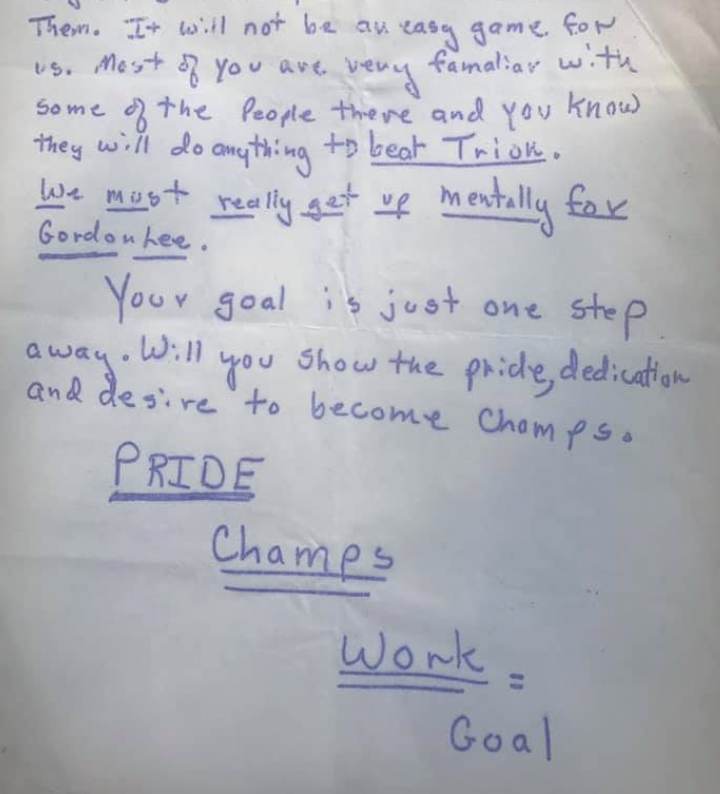 Them. It will not be an easy game for
us. Most of you are very famaliar with
some of the People there and you know
they will do anything to beat Trion.
We must really get up mentally for
Gordon Lee.
Your goal is just one step
away. Will you show the pride, dedication
and desire to become Champs.
PRIDE
Champs
Work =
Goal